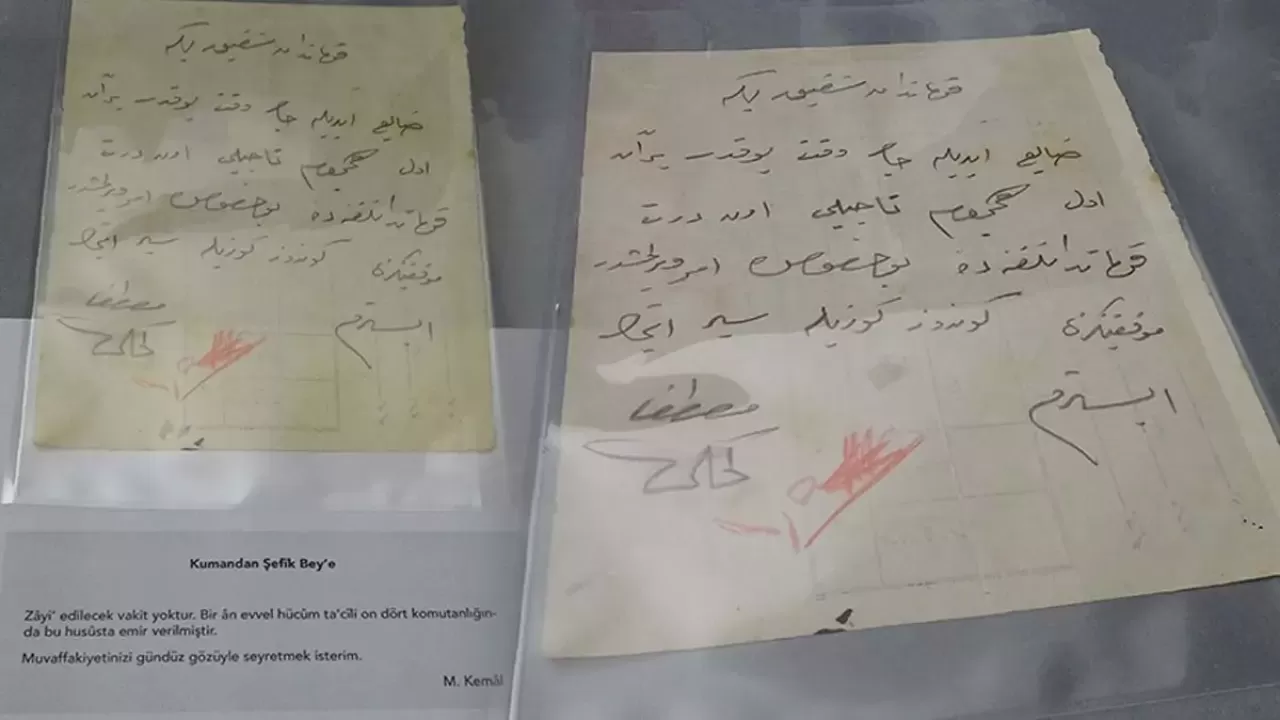 قوماندان شفیق بكه
ضایع ایدیله جك وقت یوقدر بر آن
اول هجوم تاجیلی اون درت
قوماندانلغنده بو خصوص امر ویرلمشدر
موفقیتكزی كوندوز كوزیله سیر ایتمك
ایسترم
مصطفا
كمال
قوماندان شفیق بكه
ضایع ایدیله جك وقت یوقدر بر آن
اول هجوم تاجیلی اون درت
قوماندانلغنده بو خصوص امر ویرلمشدر
موفقیتكزی كوندوز كوزیله سیر ایتمك
ایسترم
مصطفا
كمال
Kumandan Şefîk Bey'e
Zâyi' edilecek vakit yoktur. Bir ân evvel hücûm ta'cîli on dört komutanlığın-
da bu husûsta emir verilmiştir.
Muvaffakiyetinizi gündüz gözüyle seyretmek isterim.
M. Kemâl